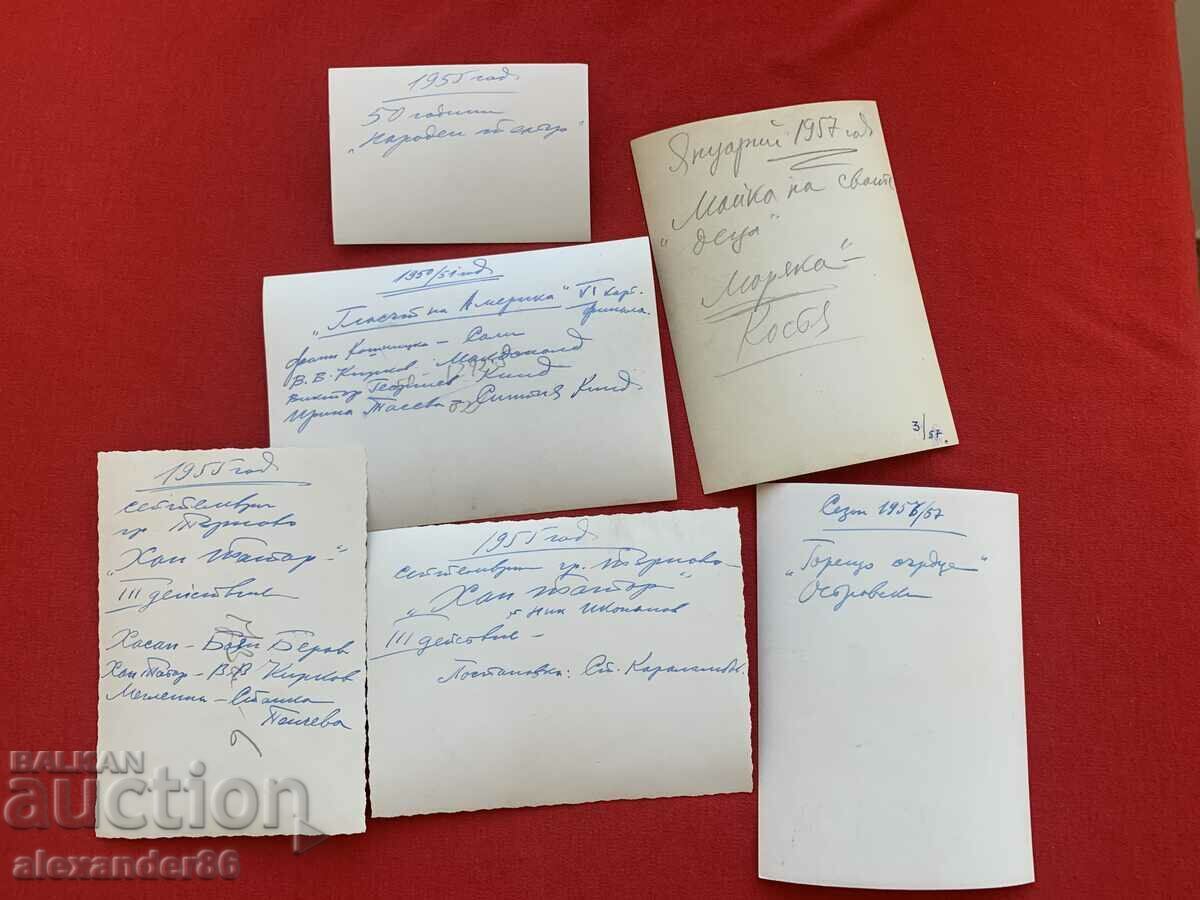 1955 год
50 години
"Народен театър"
Януарий 1957 год
"Майка на своите
деца"
Моряка"-
Костя
3/57.
1950/51 год
"Гласът на Америка" VI карт.
финала.
Кошницка - Сали
В. В. Кирков - Макдоналд
Виктор Георгиев - Кид
Ирина Тасева - Кид
1955 год
септември
гр Търново
"Хан Татар"
III действие
Хасан - Беров
Хан Татар - В.В Кирков
Меглена - Стоянка
1955 год
септември гр. Търново
"Хан Татар"
Ник Икономов
III действие -
Постановка: Ст. Карамлъков.
Сезон 1956/57
"Горещо сърце"
Островски
BALKAN
auction
alexander86